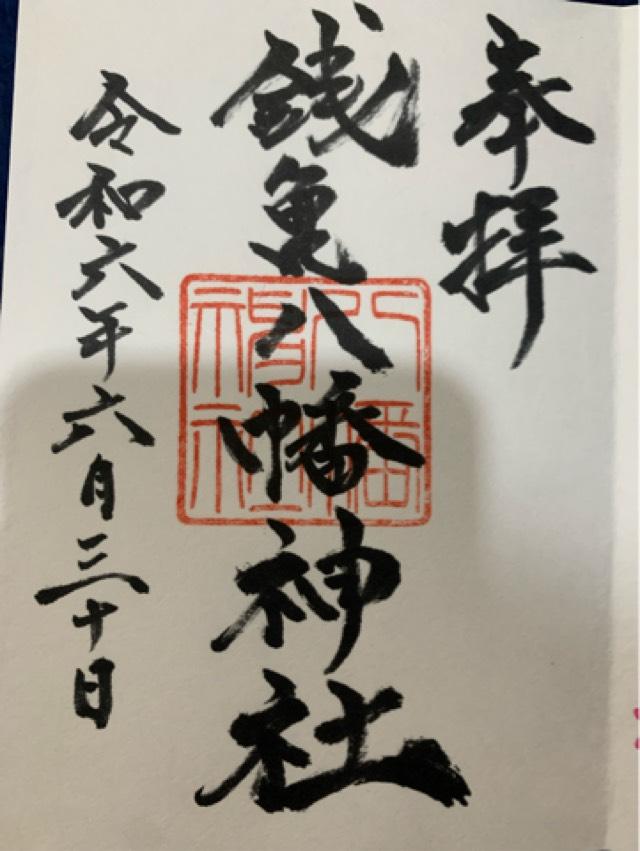 奉拝
銭亀八幡神社
八幡神社
令和六年六月三十日